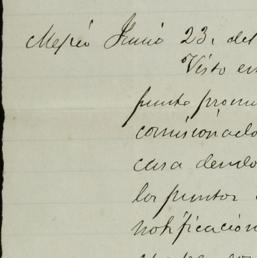 Mexico Junio 23, del
Visto en
punto promo
comisionado
casa dendo
los puntos
notificación